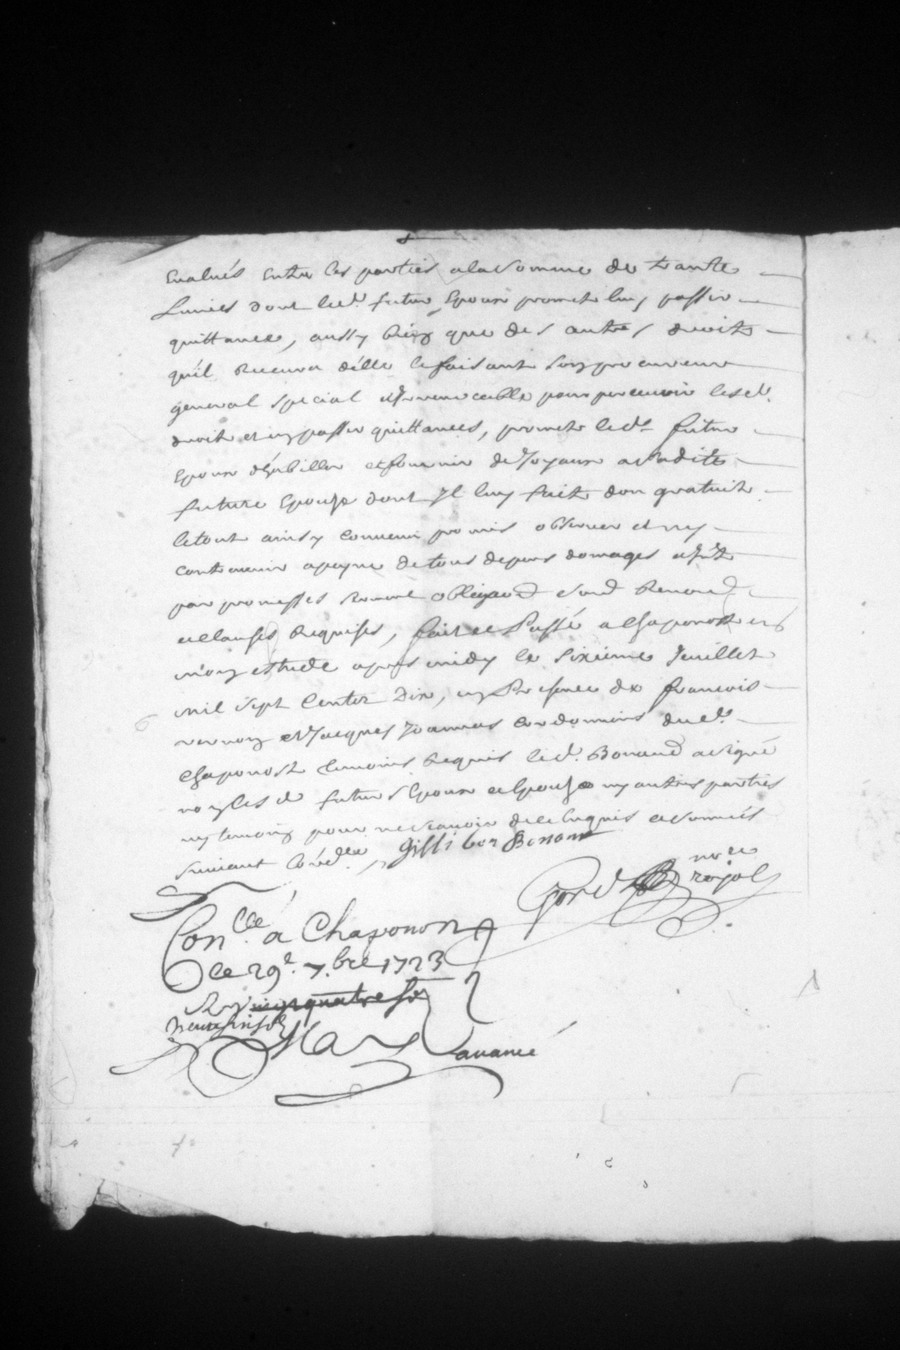 Evalués entre les parties a la somme de trante
Livres dont led. futur Epoux promet luy passer
quittance, aussy bien que des autres droits
quil recevra d'elle le faisant son procureur
general special et irrevocable pour percevoir lesd.
droits et en passer quittances, promet led. futur
Epoux d'habiller et fournir de Joyaux a ladite
future Epouse dont Il luy fait don gratuit
le tout ainsy convenu promis observer et ny
contrevenir a peyne de tous depens domages
par promesses soumⁿ obligaon
et clauses requises, fait et Passé a Chaponost en
mon estude apres midy le sixieme Juillet
mil sept cents Dix, en presence de francois
et Jacques Joannas cordonniers dud.
Chaponost temoins requis led. Bonand a signé
non lesd. futurs Epoux et Epouse ny autres parties
ny temoins pour ne scavoir de ce enquis et sommés
suivant l'ord.ce, Gillibert Bonan
nore
roial
Con.llé a Chaponon
le 29e. 7.bre 1723
avancé